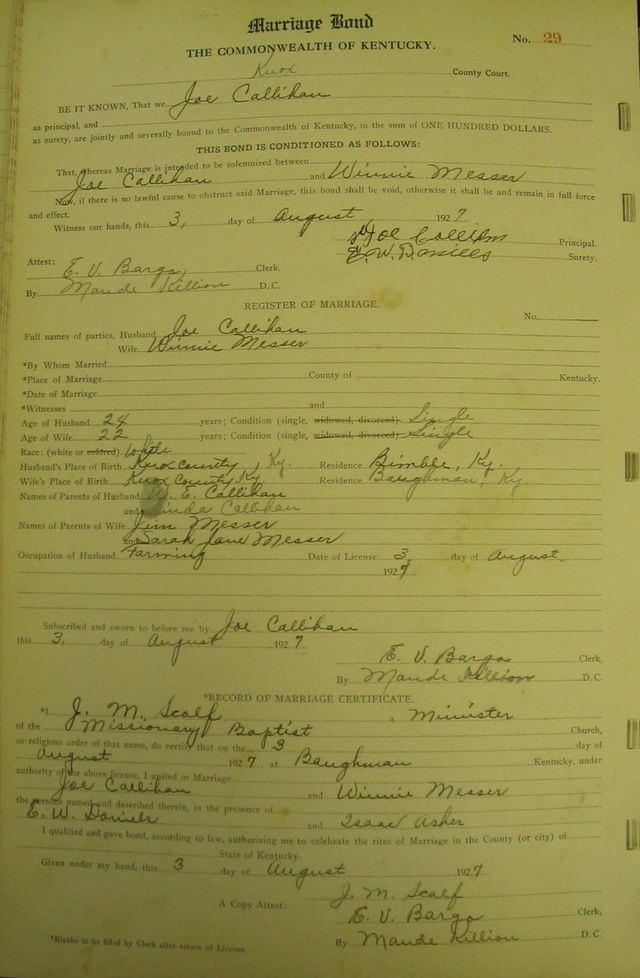 Marriage Bond
THE COMMONWEALTH OF KENTUCKY.
No. 29
Knox County Court.
BE IT KNOWN, That we Joe Callihan
as principal, and
as surety, are jointly and severally bound to the Commonwealth of Kentucky, in the sum of ONE HUNDRED DOLLARS.
THIS BOND IS CONDITIONED AS FOLLOWS:
That, Whereas Marriage is intended to be solemnized between
Joe Callihan and Winnie Messer
Now, if there is no lawful cause to obstruct said Marriage, this bond shall be void, otherwise it shall be and remain in full force
and effect.
Witness our hands, this 3, day of August 1927
Joe Principal.
E. W. Daniels Surety.
Attest:
E. V. Bargo, Clerk.
By Maude Killion D. C.
REGISTER OF MARRIAGE.
No.
Full names of parties, Husband Joe Callihan
Wife Winnie Messer
*By Whom Married
*Place of Marriage County of Kentucky.
*Date of Marriage
*Witnesses and
Age of Husband 24 years; Condition (single, widowed, divorced) Single
Age of Wife 22 years; Condition (single, widowed, divorced) Single
Race: (white or colored) White
Husband's Place of Birth Knox County, Ky. Residence Bimble, Ky.
Wife's Place of Birth Knox County Ky. Residence Baughman, Ky.
Names of Parents of Husband E. Callihan
and Linda Callihan
Names of Parents of Wife Jim Messer
and Sarah Jane Messer
Occupation of Husband Farming Date of License 3, day of August.
1927
Subscribed and sworn to before me by Joe Callihan
this 3, day of August 1927
E. V. Bargo Clerk,
By Maude Killion D. C.
*RECORD OF MARRIAGE CERTIFICATE.
*I J. M. Scalf a Minister
of the Missionary Baptist Church,
or religious order of that name, do certify that on the 3 day of
August 1927, at Baughman Kentucky, under
authority of the above license, I united in Marriage
Joe Callihan and Winnie Messer
the persons named and described therein, in the presence of
E. W. Daniels and Isaac Asher
I qualified and gave bond, according to law, authorizing me to celebrate the rites of Marriage in the County (or city) of
State of Kentucky.
Given under my hand, this 3 day of August 1927
J. M. Scalf
A Copy Attest: E. V. Bargo Clerk,
*Blanks to be filled by Clerk after return of License. By Maude Killion D. C.